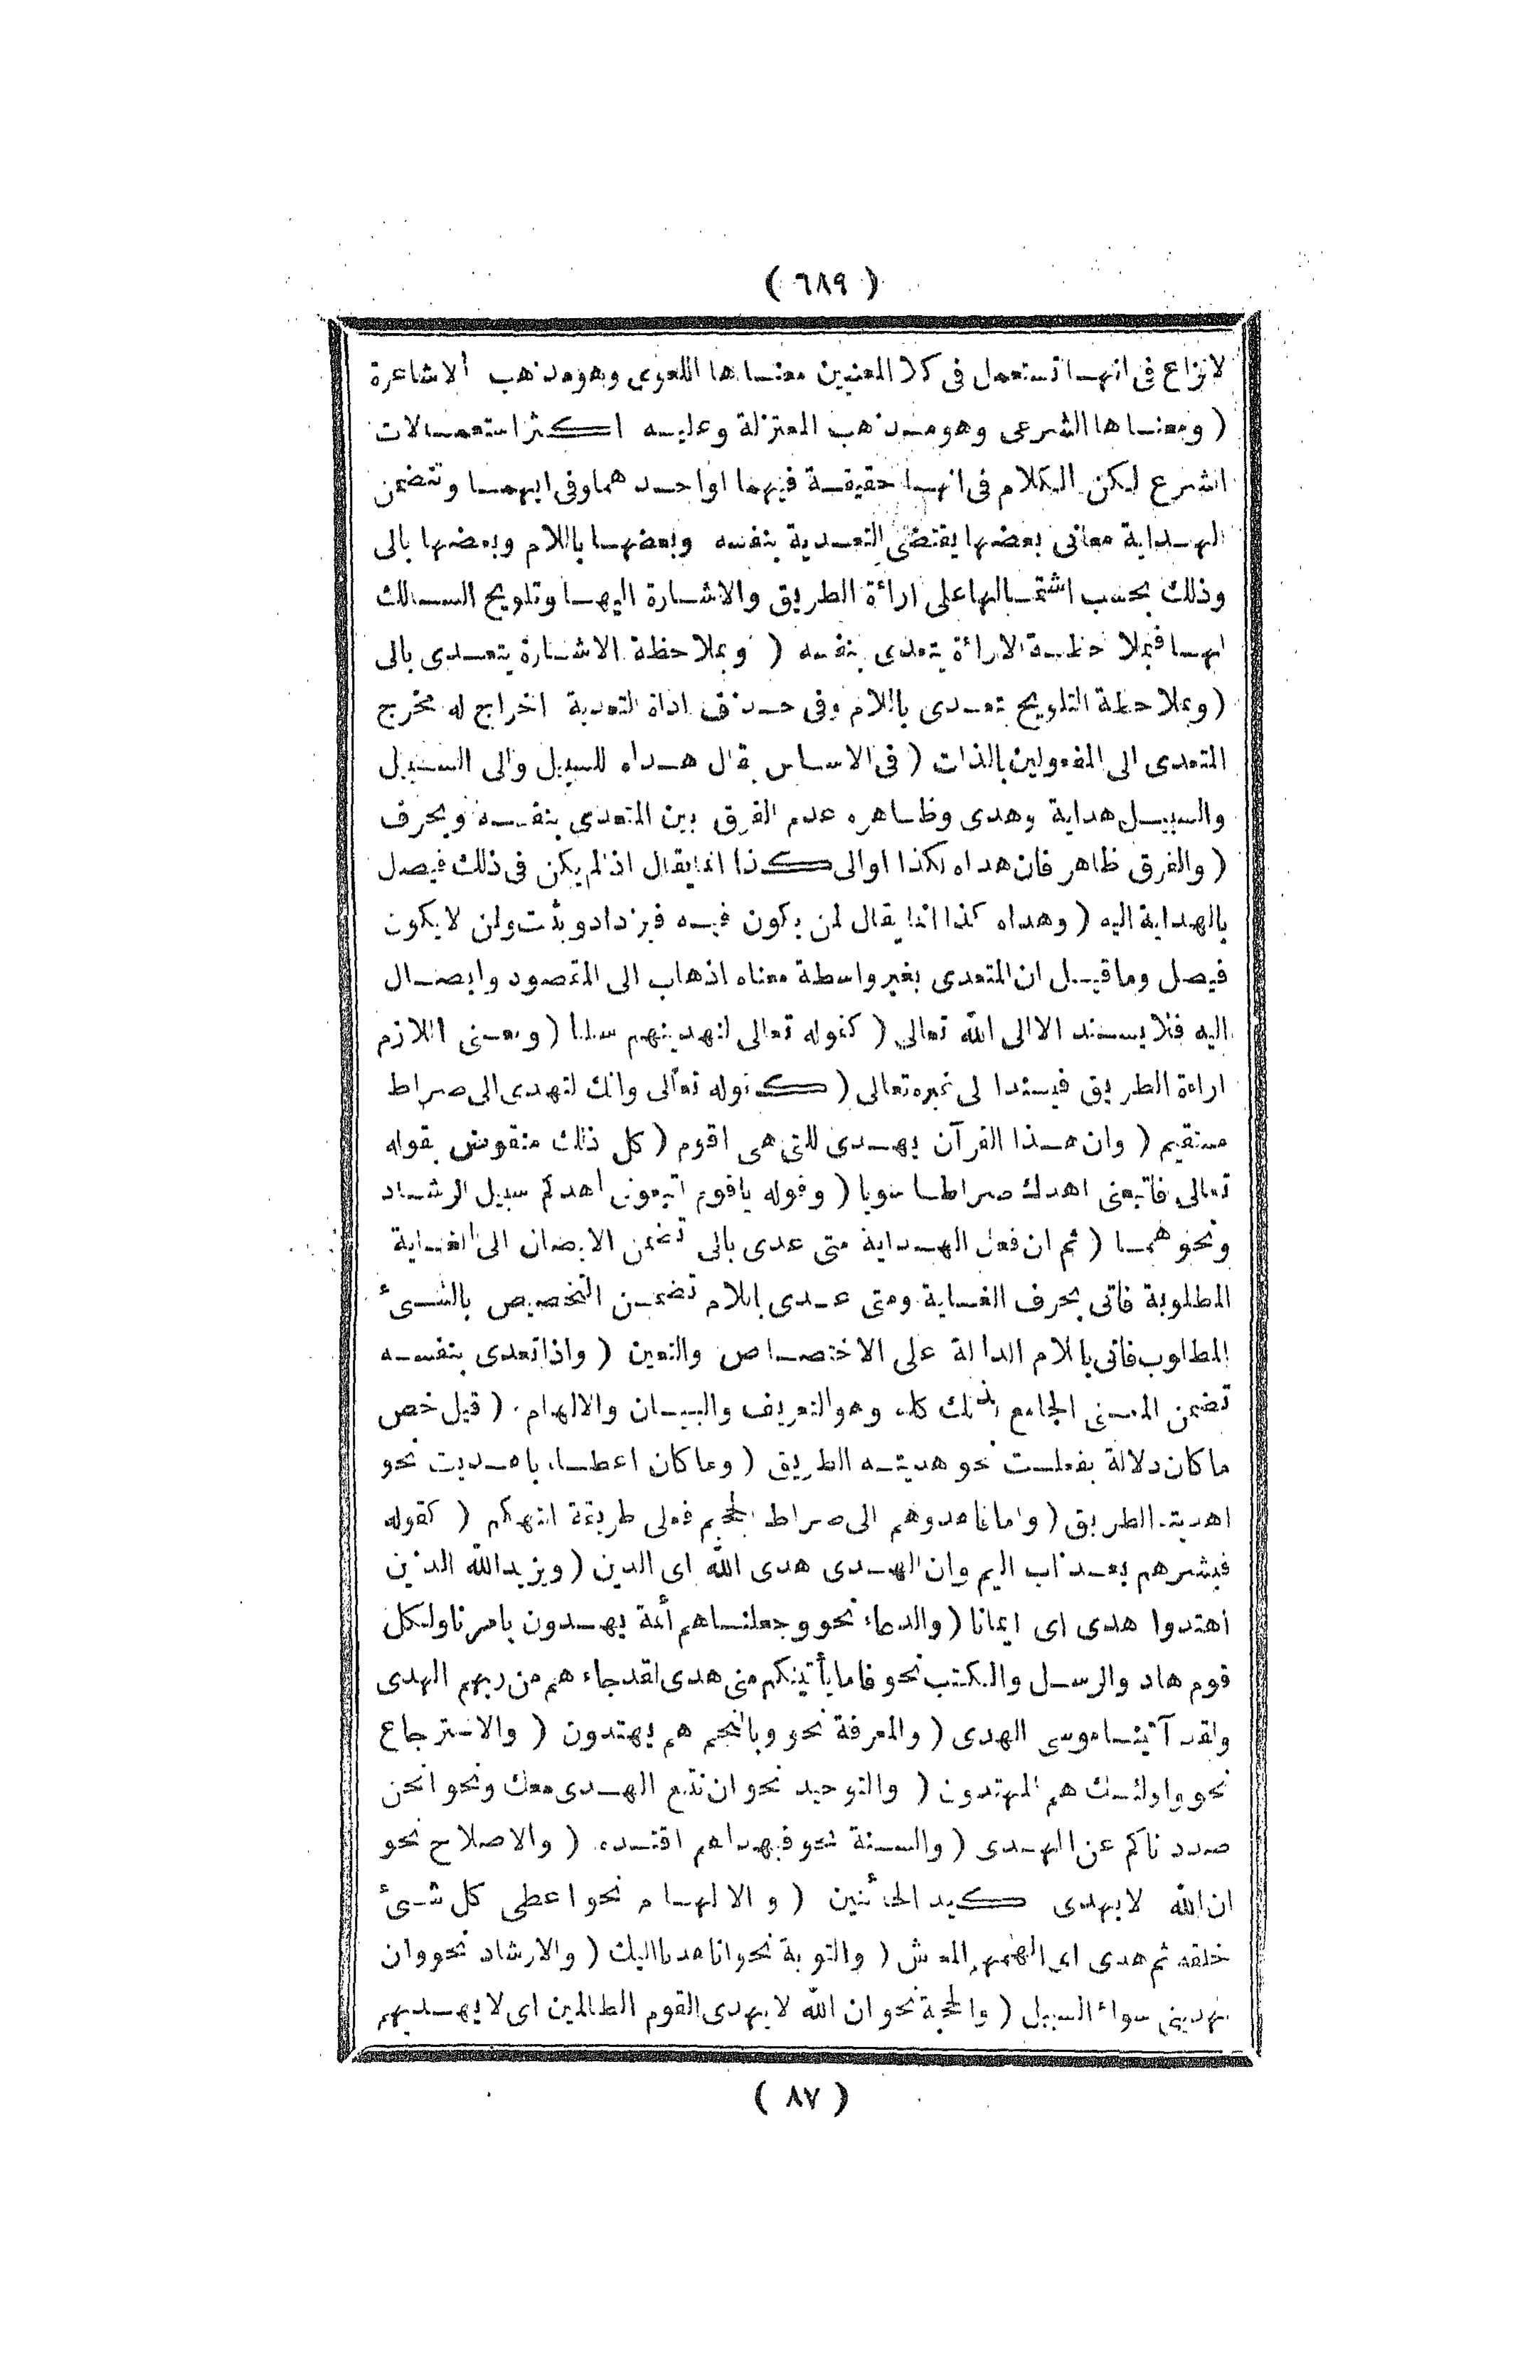 ( ٦٨٩ )
لا نزاع فى انهـا تستعمل فى كلا المعنيين معنـاها اللغوى وهو مذهب الاشاعرة
( ومعنـاها الشرعى وهو مـذهب المعتزلة وعليـه اكـثر استعمـالات
الشرع لكن الكلام فى انهـا حقيقـة فيهما او احـدهما وفى ايهمـا وتتضمن
الهـداية معانى بعضها يقتضى التعـدية بنفسه وبعضهـا باللام وبعضها بالى
وذلك بحسب اشتمـالها على ارائة الطريق والاشـارة اليهـا وتلويح السـالك
لهـا فبملا حظـة الارائة يتعدى بنفسه ( وبملاحظة الاشـارة يتعـدى بالى
( وبملاحظة التلويح تعـدى باللام وفى حـذف اداة التعدية اخراج له مخرج
المتعدى الى المفعولين بالذات ( فى الاسـاس يقال هـداه للسبيل والى السبيل
والسبيـل هداية وهدى وظـاهره عدم الفرق بين المتعدى بنفسـه وبحرف
( والفرق ظاهر فان هداه لكذا او الى كـذا انما يقال اذا لم يكن فى ذلك فيصل
بالهداية اليه ( وهداه كذا انما يقال لمن يكون فيـه فيزداد ويثبت ولمن لا يكون
فيصل وما قيـل ان المتعدى بغير واسطة معناه اذهاب الى المقصود وايصـال
اليه فلا يسـند الا الى الله تعالى ( كقوله تعالى لنهدينهم سبلنا ( ومعـنى اللازم
اراءة الطريق فيسند الى غيره تعالى ( كـقوله تعالى وانك لتهدى الى صراط
مستقيم ( وان هـذا القرآن يهـدى للتى هى اقوم ( كل ذلك منقوض بقوله
تعالى فاتبعنى اهدك صراطـا سويا ( وقوله يا قوم اتبعون اهدكم سبيل الرشـاد
ونحوهمـا ( ثم ان فعل الهـداية متى عدى بالى تضمن الايصال الى الغـاية
المطلوبة فاتى بحرف الغـاية ومتى عـدى باللام تضمـن التخصيص بالشـئ
المطلوب فاتى باللام الدالة على الاختصـاص والتعين ( واذا تعدى بنفسـه
تضمن المعـنى الجامع لذلك كله وهو التعريف والبيـان والالهام ( قيل خص
ما كان دلالة بفعلـت نحو هديتـه الطريق ( وما كان اعطـاء باهـديت نحو
اهديته الطريق ( واما فاهدوهم الى صراط الجحيم فعلى طريقة التهكم ( كقوله
فبشرهم بعـذاب اليم وان الهـدى هدى الله اى الدين ( ويزيد الله الذين
اهتدوا هدى اى ايمانا ( والدعاء نحو وجعلنـاهم أئمة يهـدون بامرنا ولكل
قوم هاد والرسـل والكتب نحو فاما يأتينكم منى هدى لقد جاءهم من ربهم الهدى
ولقد آتينـا موسى الهدى ( والمعرفة نحو وبالنجم هم يهتدون ( والاسترجاع
نحو واولئـك هم المهتدون ( والتوحيد نحو ان نتبع الهـدى معك ونحو انحن
صددناكم عن الهـدى ( والسـنة نحو فبهداهم اقتـده ( والاصلاح نحو
ان الله لا يهدى كـيد الخائنين ( والالهـام نحو اعطى كل شـئ
خلقه ثم هدى اى الهمهم المعاش ( والتوبة نحو انا هدنا اليك ( والارشاد نحو وان
يهدينى سواء السبيل ( والحجة نحو ان الله لا يهدى القوم الظالمين اى لا يهـديهم
( ٨٧ )